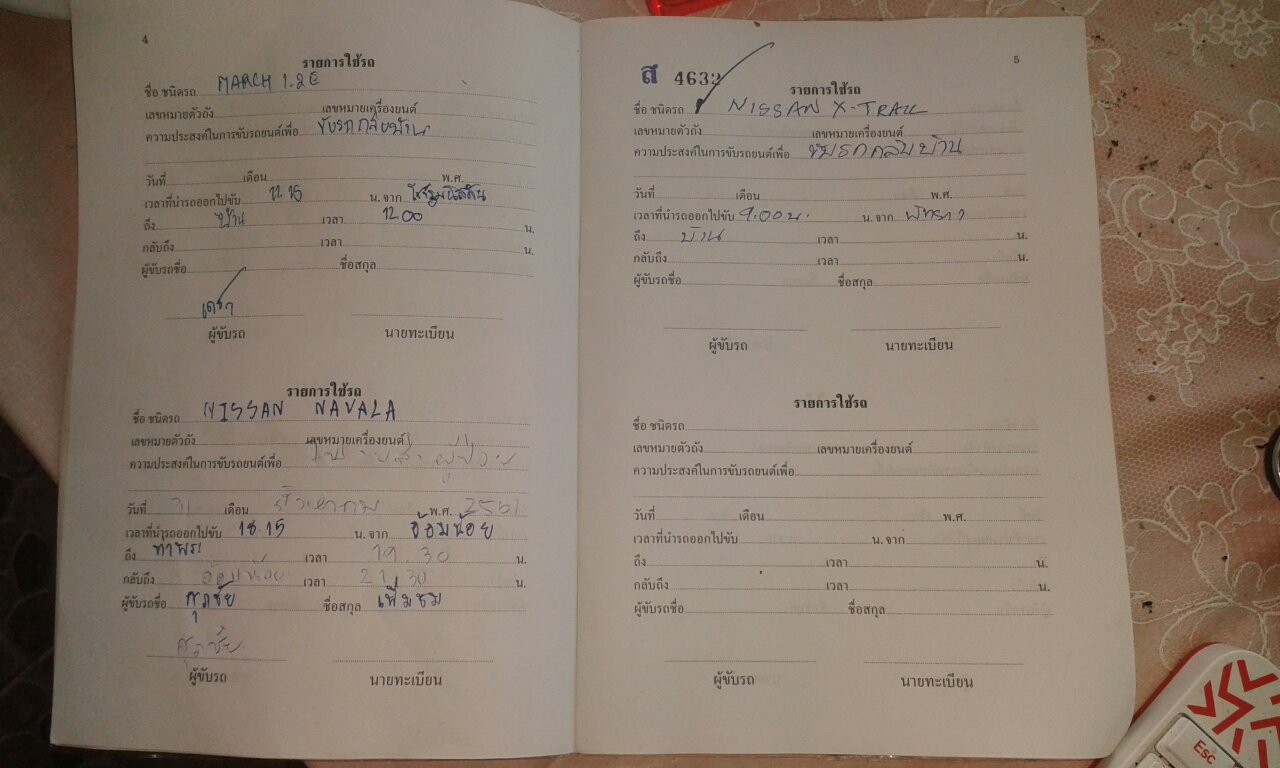 4
รายการใช้รถ
ชื่อ ชนิดรถ MARCH 1.2E
เลขหมายตัวถัง เลขหมายเครื่องยนต์
ความประสงค์ในการขับรถยนต์เพื่อ ขับรถกลับบ้าน
วันที่ เดือน พ.ศ.
เวลาที่นำรถออกไปขับ 11.15 น. จาก
ถึง บ้าน เวลา 12.00 น.
กลับถึง เวลา น.
ผู้ขับรถชื่อ ชื่อสกุล
ผู้ขับรถ นายทะเบียน
รายการใช้รถ
ชื่อ ชนิดรถ NISSAN NAVALA
เลขหมายตัวถัง เลขหมายเครื่องยนต์
ความประสงค์ในการขับรถยนต์เพื่อ
วันที่ 31 เดือน ธันวาคม พ.ศ. 2561
เวลาที่นำรถออกไปขับ 18.15 น. จาก อ้อมน้อย
ถึง ท่าพระ เวลา 19 30 น.
กลับถึง อ้อมน้อย เวลา 21 30 น.
ผู้ขับรถชื่อ ศุภชัย ชื่อสกุล เพิ่มชม
ศุภชัย
ผู้ขับรถ นายทะเบียน
5
ส 4632
รายการใช้รถ
ชื่อ ชนิดรถ NISSAN X-TRAIL
เลขหมายตัวถัง เลขหมายเครื่องยนต์
ความประสงค์ในการขับรถยนต์เพื่อ ขับรถกลับบ้าน
วันที่ เดือน พ.ศ.
เวลาที่นำรถออกไปขับ 9.00 น. น. จาก พัทยา
ถึง บ้าน เวลา น.
กลับถึง เวลา น.
ผู้ขับรถชื่อ ชื่อสกุล
ผู้ขับรถ นายทะเบียน
รายการใช้รถ
ชื่อ ชนิดรถ
เลขหมายตัวถัง เลขหมายเครื่องยนต์
ความประสงค์ในการขับรถยนต์เพื่อ
วันที่ เดือน พ.ศ.
เวลาที่นำรถออกไปขับ น. จาก
ถึง เวลา น.
กลับถึง เวลา น.
ผู้ขับรถชื่อ ชื่อสกุล
ผู้ขับรถ นายทะเบียน
Esc